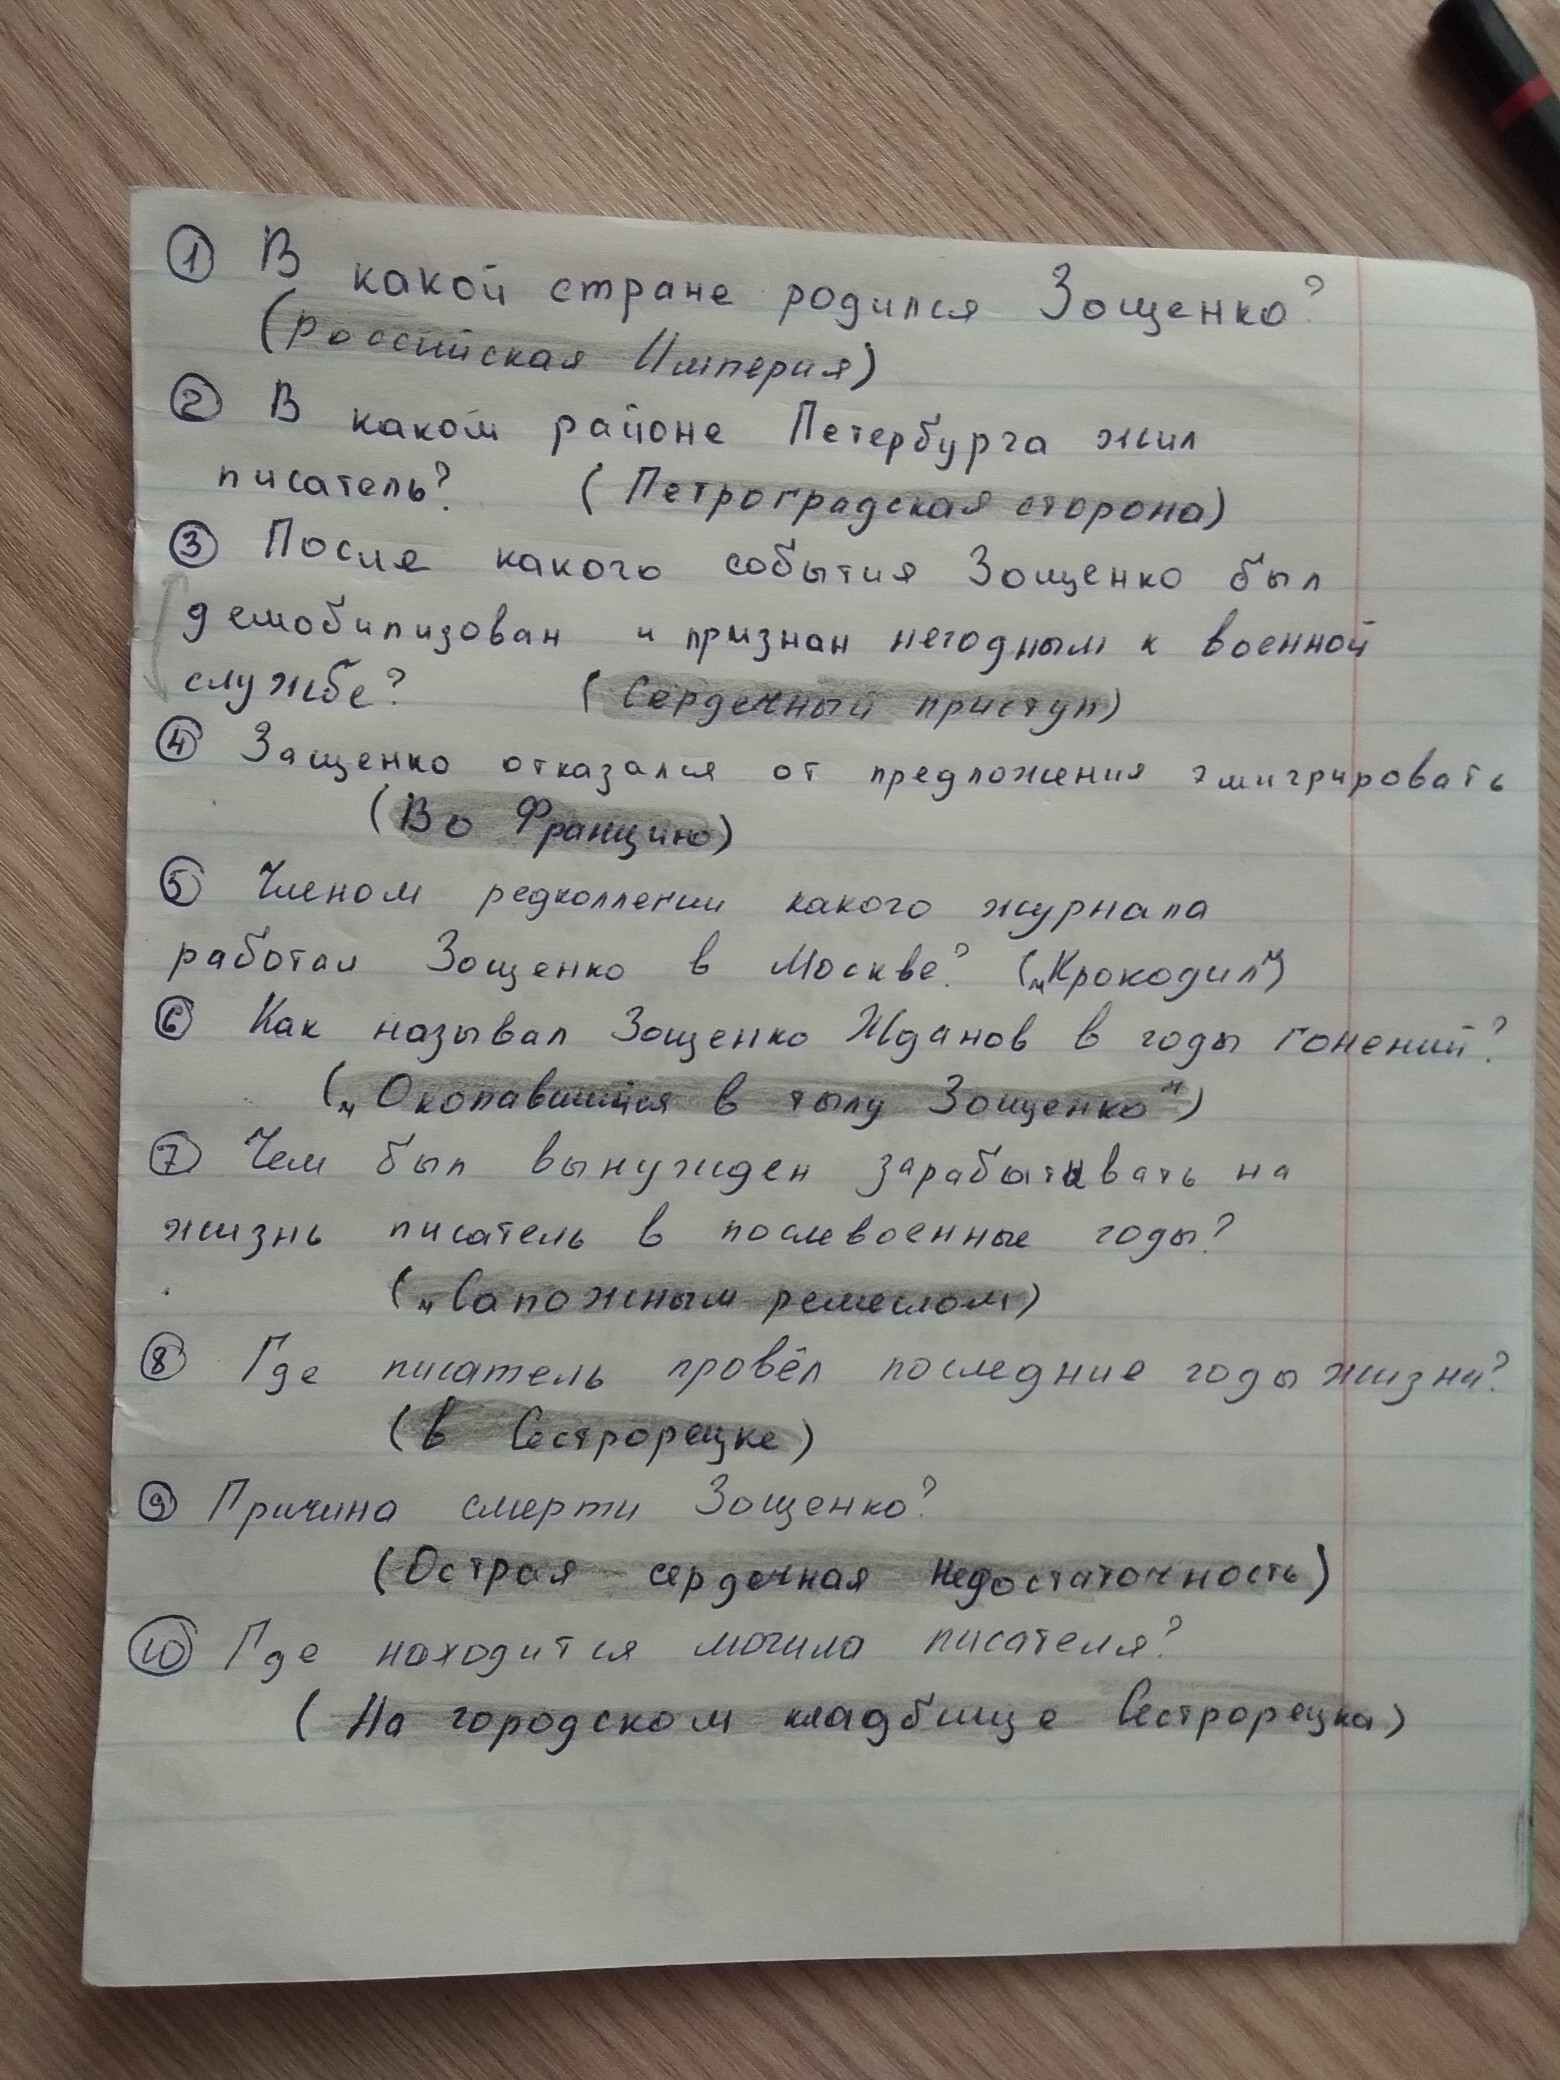 ① В какой стране родился Зощенко?
(российская Империя)
② В каком районе Петербурга жил
писатель? (Петроградская сторона)
③ После какого события Зощенко был
демобилизован и признан негодным к военной
службе? (Сердечный приступ)
④ Защенко отказался от предложения эмигрировать
(Во Францию)
⑤ Членом редколлегии какого журнала
работал Зощенко в Москве? („Крокодил")
⑥ Как называл Зощенко Жданов в годы гонений?
(„Окопавшийся в тылу Зощенко")
⑦ Чем был вынужден зарабатывать на
жизнь писатель в послевоенные годы?
(„Сапожным ремеслом)
⑧ Где писатель провёл последние годы жизни?
(в Сестрорецке)
⑨ Причина смерти Зощенко?
(Острая сердечная недостаточность)
⑩ Где находится могила писателя?
(На городском кладбище Сестрорецка)